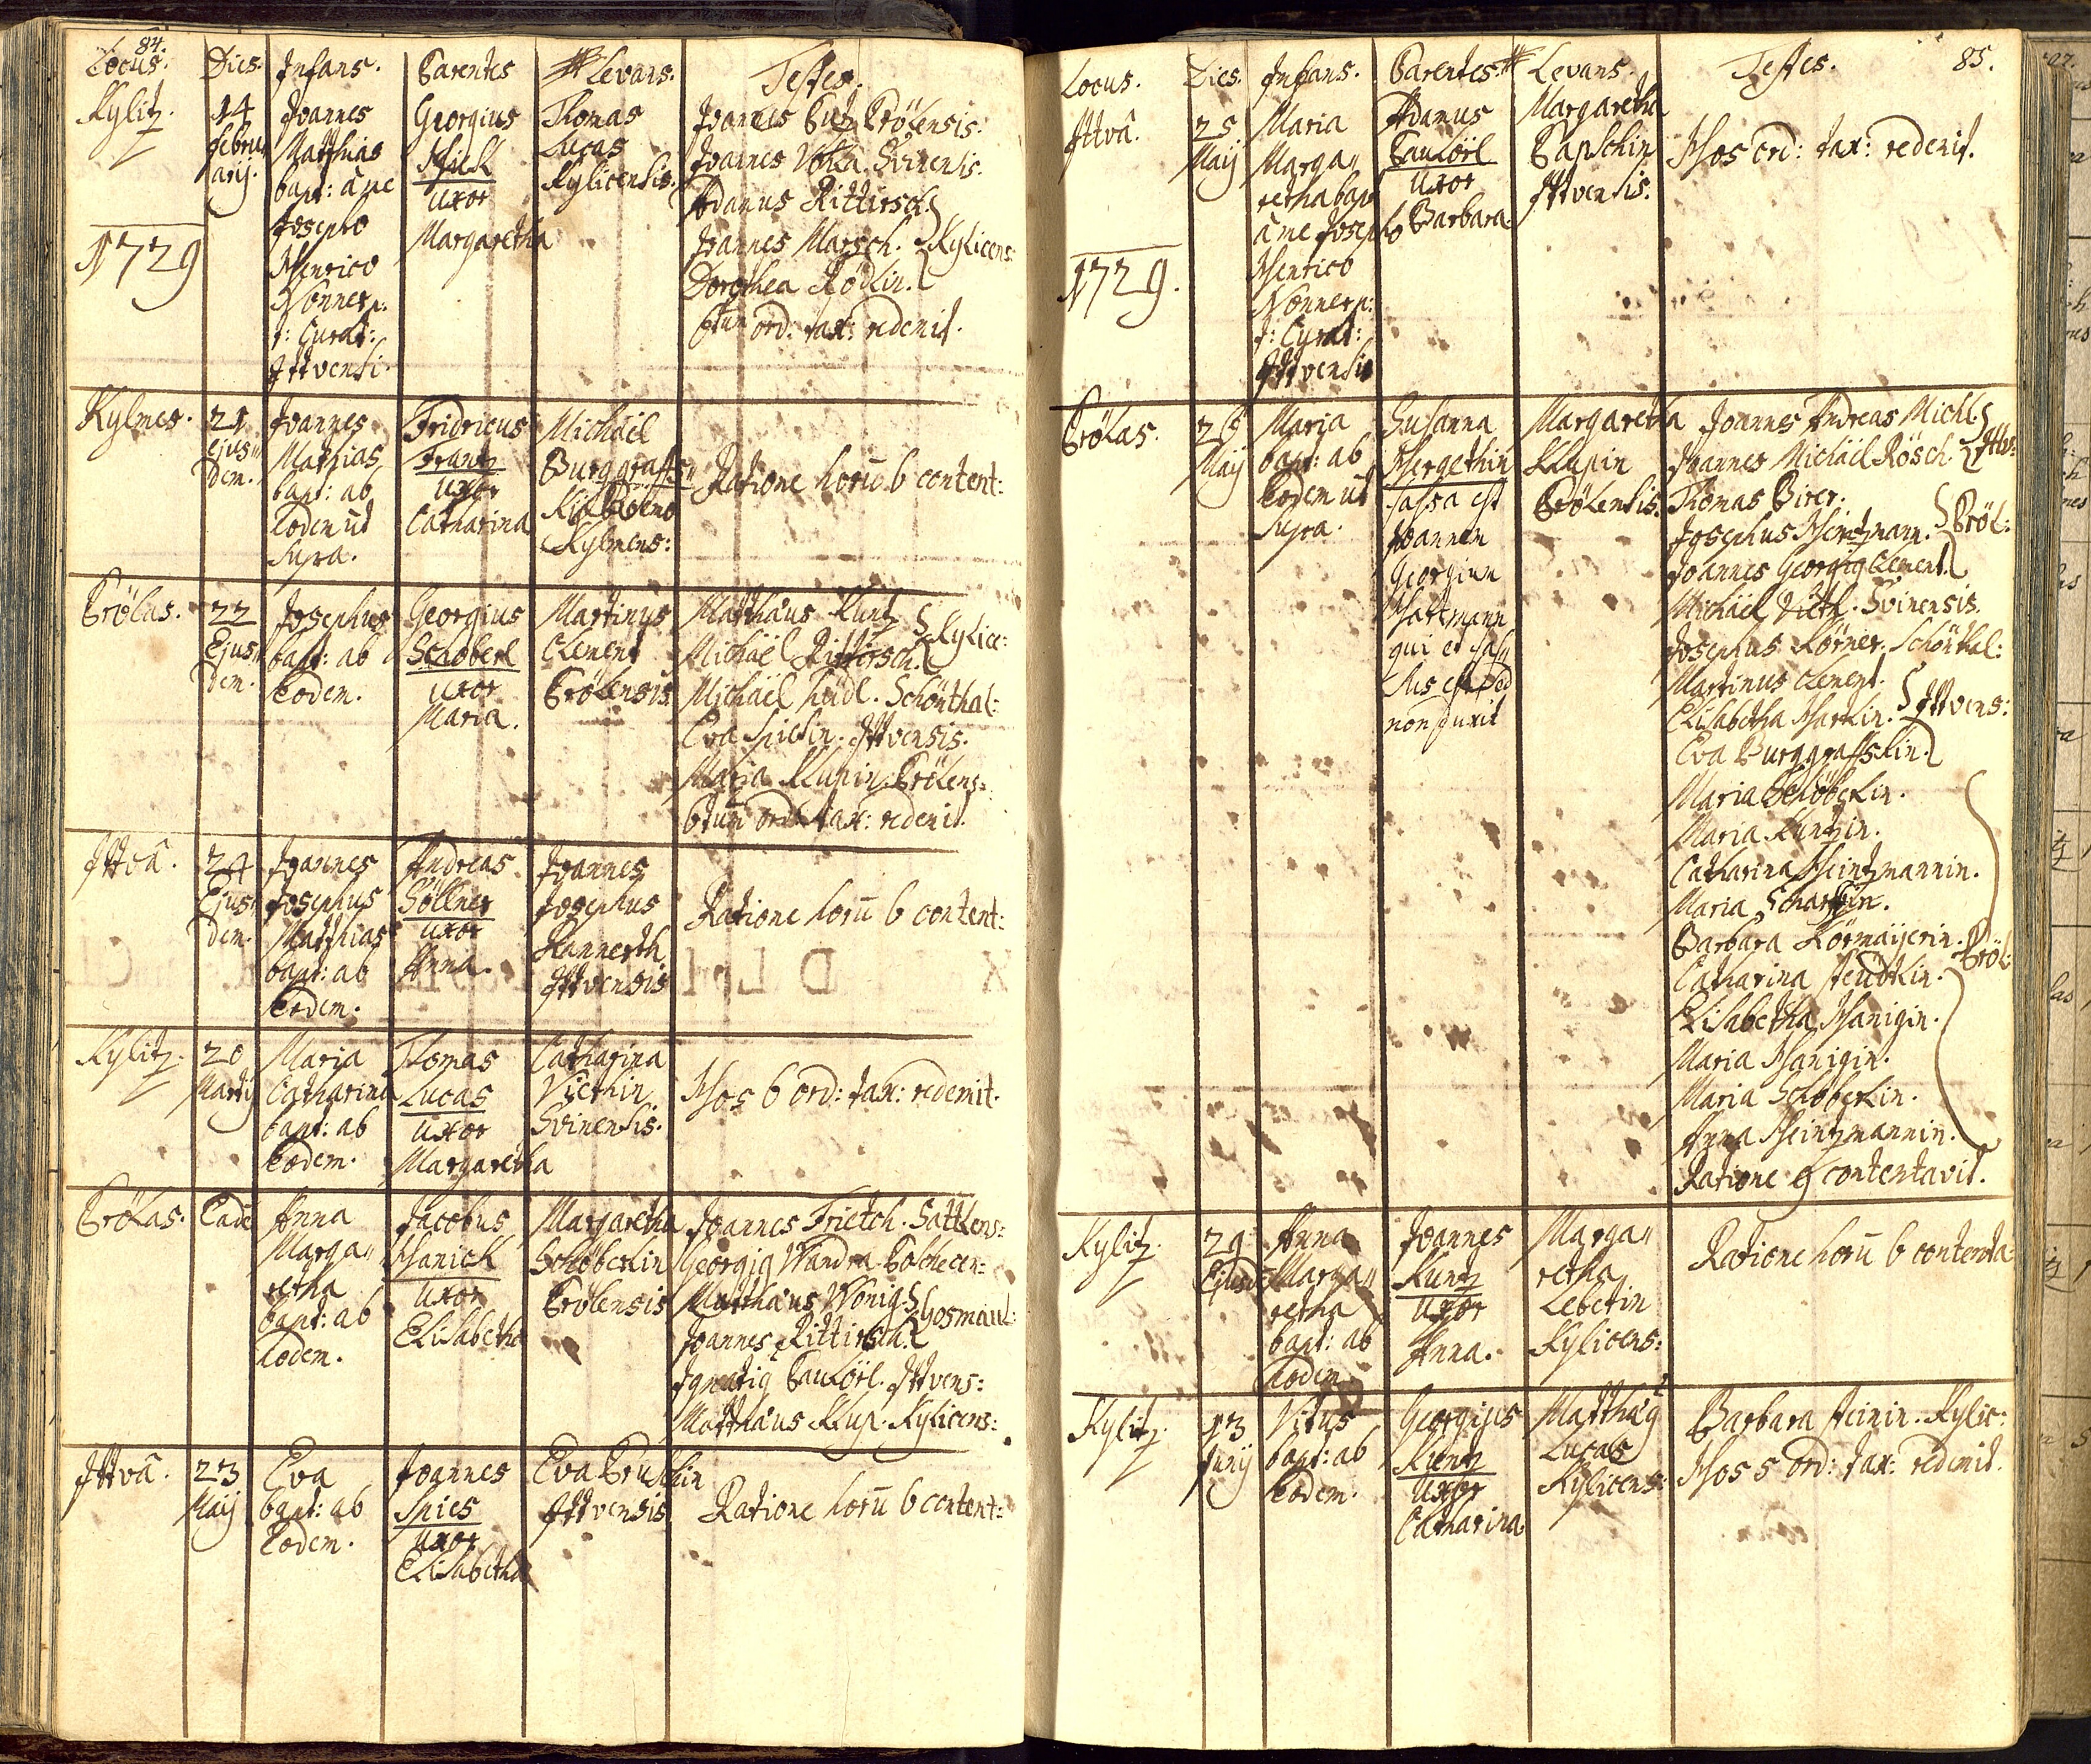 84.
Locus. Dies. Infans. Parentes Levans. Testes.
Kylitz.
1729
14
Febru
arij.
Joannes
Matthias
bapt: à me
Josepho
Henrico
Nonner p:
t: Curat:
Ittvensi
Georgius
uxor
Margaretha
Thomas
Lucas
Kylicensis.
Joannes Putz Prölensis.
Joannes Svinensis.
Adamus Rittirsch
Joannes Marsch. Kylicens:
Dorothea Rödlin.
ord: tax: redemit.
Kylmes.
21
Ejus„
dem.
Joannes
Mathias
bapt: ab
Eodem ut
Supra.
Fridricus
Frantz
uxor
Catharina
Michäel
Burggraff
Kylmens:
Ratione horū 6 content:
Prölas.
22
Ejus„
dem.
Josephus
bapt: ab
Eodem.
Georgius
Schöberl
uxor
Maria.
Martinus
Clement
Prölensis
Matthäus Kuntz
Michäel Rittirsch. Kylice:
Michäel Schönthal:
Eva Ittvensis.
Maria Klupin Prölens:
ord: tax: redemit.
Ittvâ.
24
Ejus„
dem.
Joannes
Josephus
Matthias
bapt: ab
Eodem.
Andreas
Söllner
uxor
Anna.
Joannes
Josephus
Hannerth
Ittvensis
Ratione horū 6 content:
Kylitz.
20
Martij
Maria
Catharina
bapt: ab
Eodem.
Thomas
Lucas
uxor
Margaretha
Catharina
Viethin
Svinensis.
Hos 6 ord: tax: redemit.
Prölas.
Eadē
Anna
Marga„
retha
bapt: ab
Eodem.
Jacobus
Hanick
uxor
Elisabetha
Margaretha
Schöberlin
Prölensis
Joannes Frietch. Sattlens:
Georgig Wandra
Matthäus Wönig
Joannes Rittirsch. Gosmaul:
Ignatig Paulörl. Ittvens:
Matthäus Klup. Kylicens:
Ittvâ.
23
Maij
Eva
bapt: ab
Eodem.
Joannes
Spies
uxor
Elisabetha
Eva
Ittvensis
Ratione horū 6 content:
85.
Locus. Dies. Infans. Parentes. Levans. Testes.
Ittvâ.
1729.
25
Maij
Maria
Marga„
retha bapt
à me Josepho
Henrico
Nonner p:
t: Curat:
Ittvensi
Adamus
Paulörl
uxor
Barbara
Margaretha
Papschin
Ittvensis.
Hos ord: tax: redemit.
Prölas.
26
Maij
Maria
bapt: ab
Eodem ut
Supra.
Susanna
Hergethin
fassa est
Joannem
Georgium
Hartmann
qui et fas„
sus est sed
non duxit
Margaretha
Klupin
Prölensis.
Joannes Andreas Michl
Joannes Michäel Rösch. Ittv:
Thomas Birer.
Josephus Heintzmann. Pröl:
Joannes Georgig Clement
Michäel Vieth. Svinensis.
Josephus Körner. Schönthal:
Martinus Clement.
Elisabetha Harlin. Ittvens:
Eva Burggraffskin.
Maria Schöberlin.
Maria Kuntzin.
Catharina Heintzmannin.
Maria
Barbara Kormaijerin. Pröl:
Catharina
Elisabetha Hanigin.
Maria Hanigin.
Maria Schöberlin.
Anna Heintzmannin.
Ratione 9 contentavit.
Kylitz.
29
Ejusdē
Anna
Marga„
retha
bapt: ab
Eodem
Joannes
Kuntz
uxor
Anna.
Marga„
retha
Lebetin
Kylicens:
Ratione horū 6 contenta:
Kylitz.
13
Junij
Vitus
bapt: ab
Eodem.
Georgius
Kuntz
uxor
Catharina
Matthäg
Lucas
Kylicens:
Barbara Kylic:
Hos 5 ord: tax: redemit.